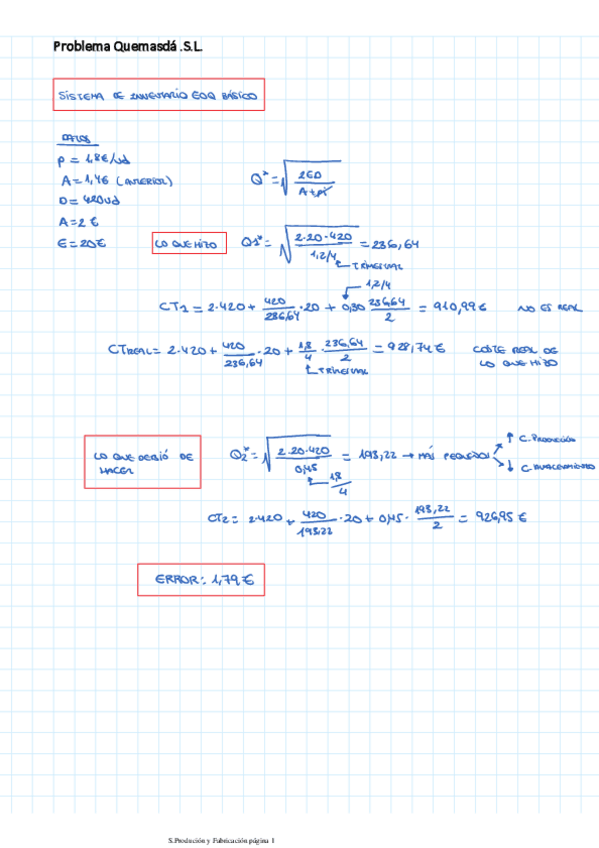 Problema Quemasdá .S.L.
SISTEMA DE INVENTARIO EOQ BÁSICO
DATOS
P = 1,8€/ud
A = 1,46 (ANTERIOR)
D = 420ud
A = 2 €
E = 20€
Q* = √(2ED / A+pi)
LO QUE HIZO
Q1* = √(2·20·420 / 1,2/4) = 236,64
TRIMESTRAL
1,2/4
CT1 = 2·420 + 420/236,64 · 20 + 0,30 · 236,64/2 = 910,99€ NO ES REAL
CTREAL = 2·420 + 420/236,64 · 20 + 1,8/4 · 236,64/2 = 928,74€ COSTE REAL DE LO QUE HIZO
TRIMESTRAL
LO QUE DEBIÓ DE HACER
Q2* = √(2·20·420 / 0,45) = 193,22 → MÁS PEQUEÑO
↑ C. PRODUCCIÓN
↓ C. ALMACENAMIENTO
1,8/4
CT2 = 2·420 + 420/193,22 · 20 + 0,45 · 193,22/2 = 926,95 €
ERROR: 1,79 €
S.Produción y Fabricación página 1